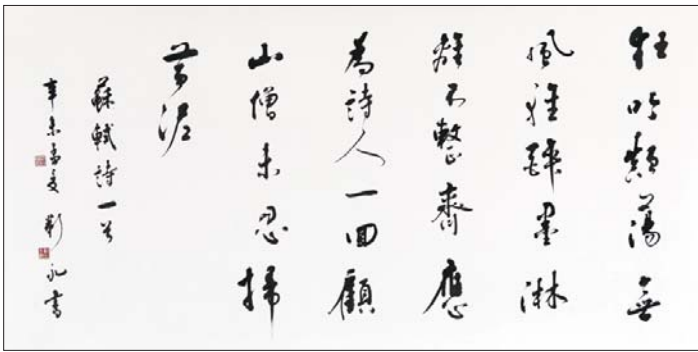 狂吟頹蕩無
風雅醉墨淋
漓不整齊應
為詩人一回顧
山僧未忍掃
黃泥
蘇軾詩一首
辛未孟夏 劉 書